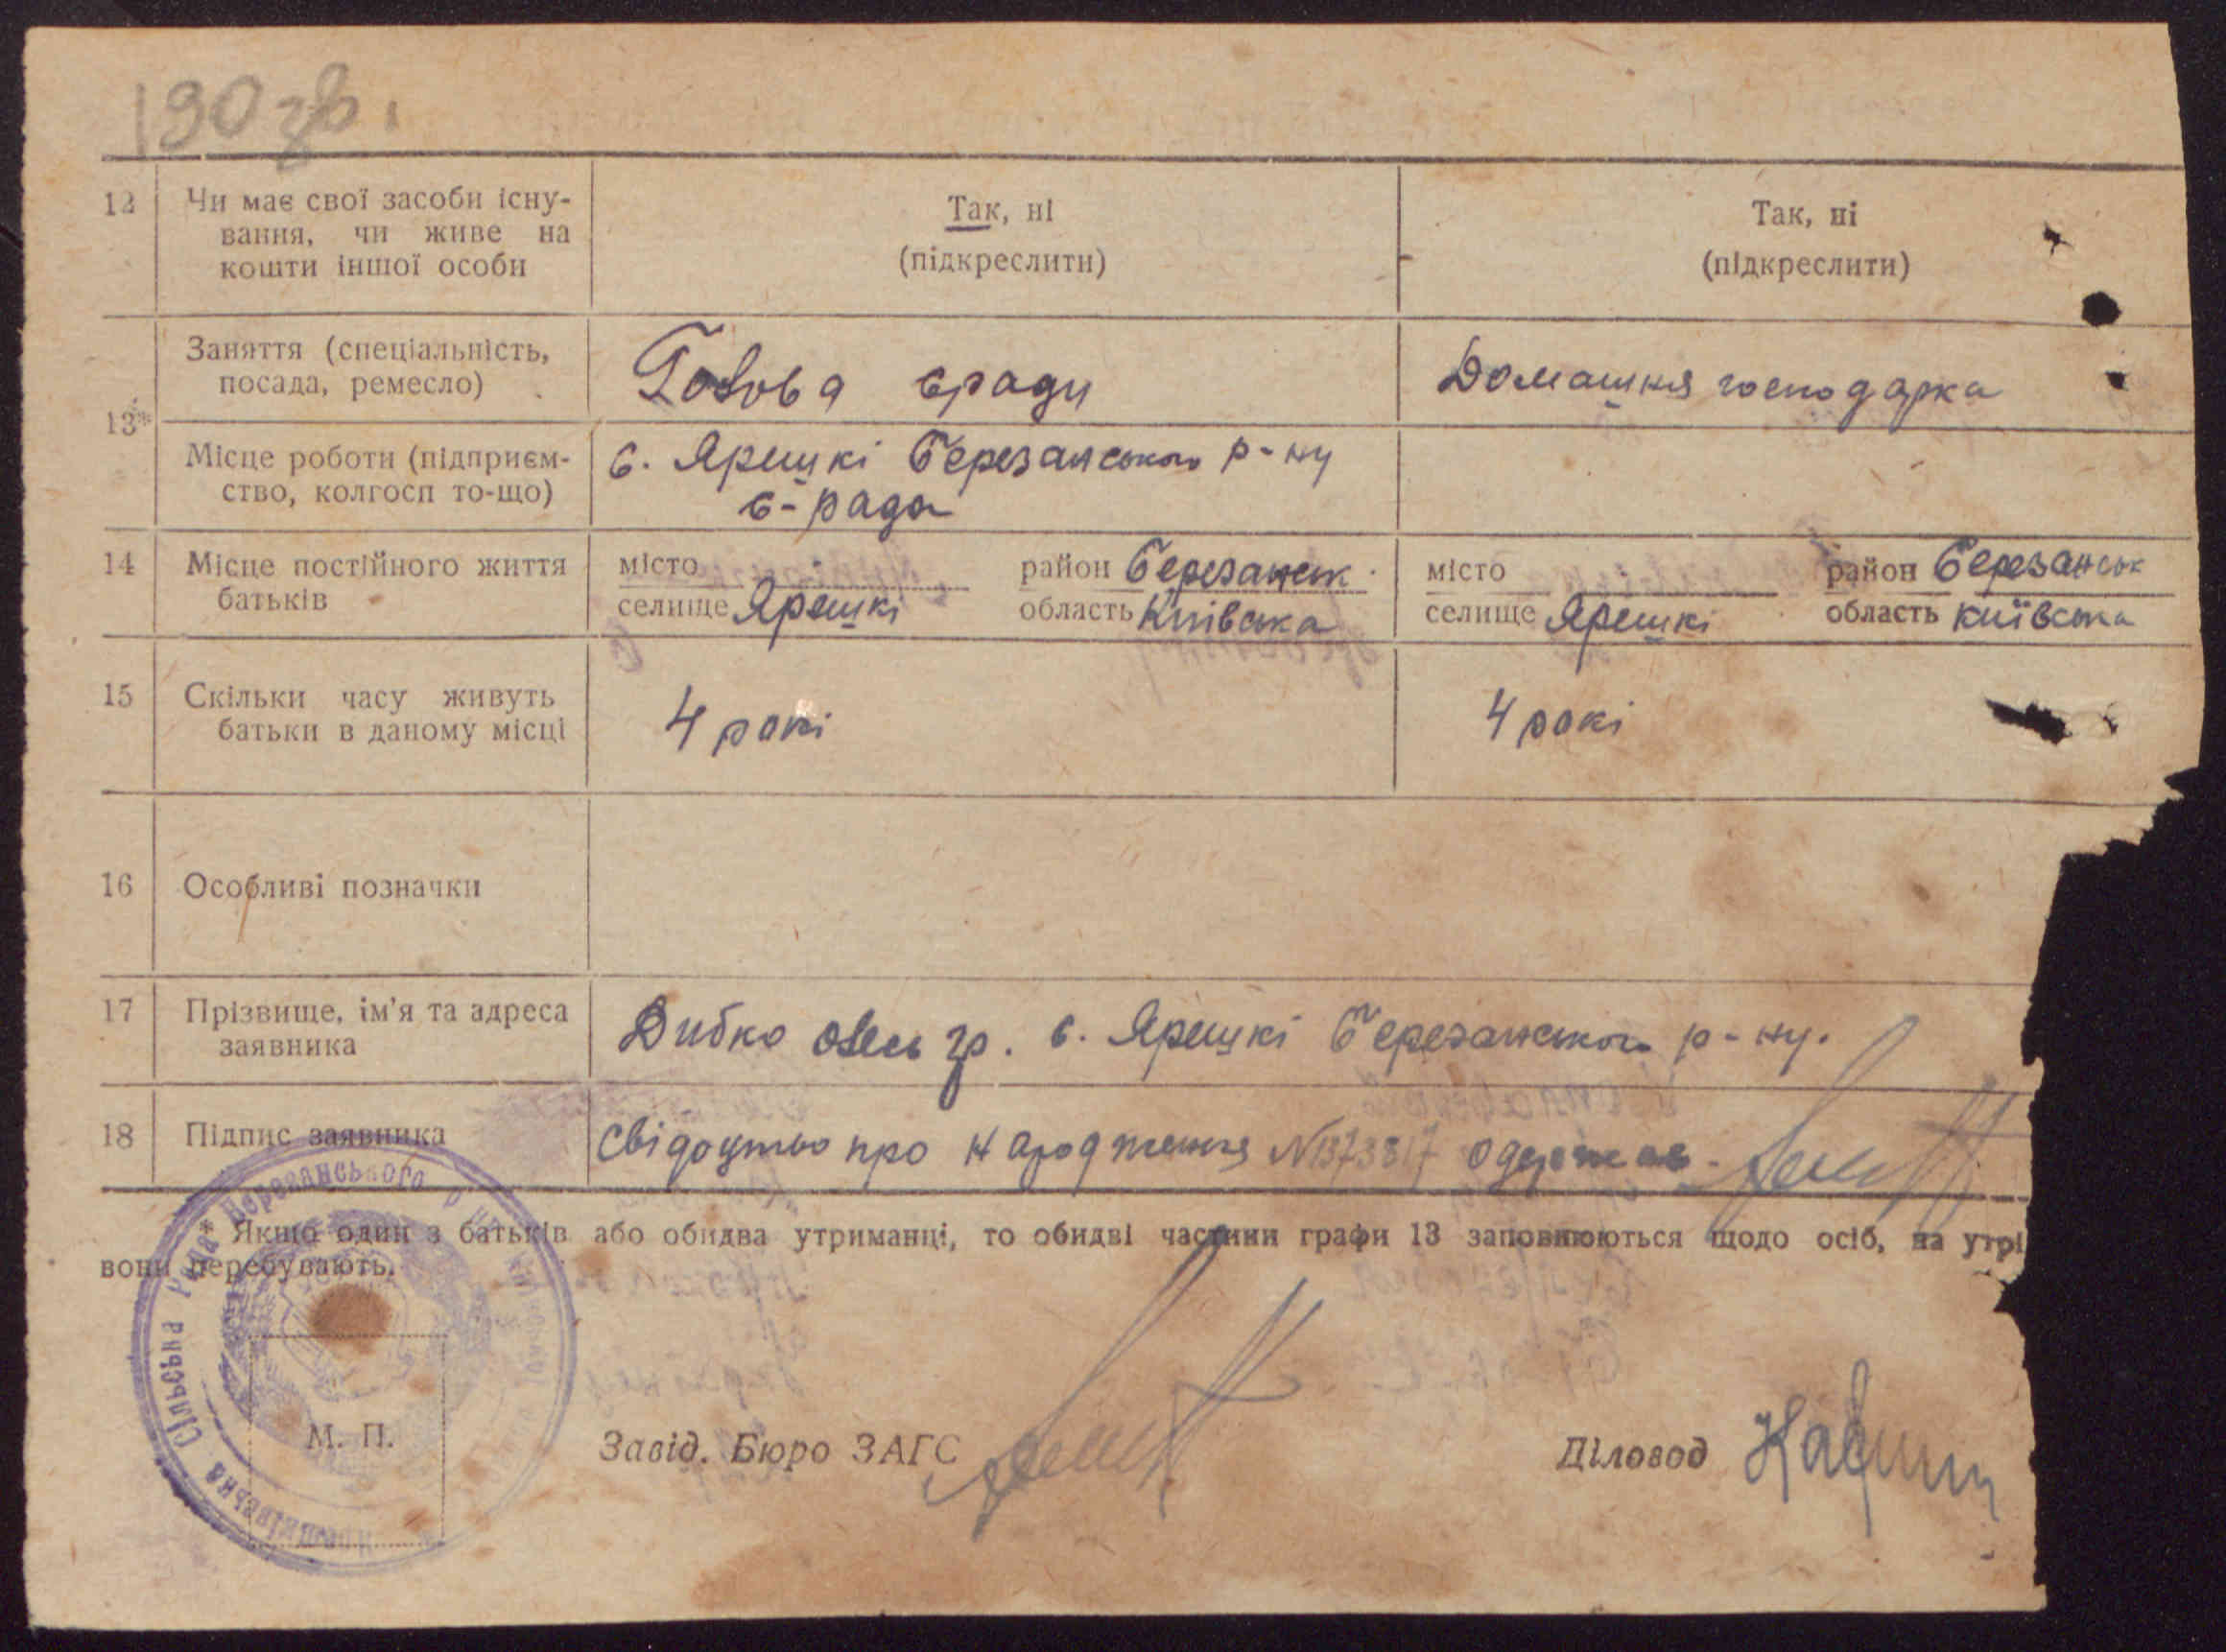 190 зв.
12 Чи має свої засоби існу-
вання, чи живе на
кошти іншої особи
Так, ні
(підкреслити)
Так, ні
(підкреслити)
13*
Заняття (спеціальність,
посада, ремесло)
Голова с ради
Домашня господарка
Місце роботи (підприєм-
ство, колгосп то-що)
с. Ярешкі Березанського р-ну
с-рада
14 Місце постійного життя
батьків
місто
селище Ярешкі
район Березанськ
область Київська
місто
селище Ярешкі
район Березанськ
область Київська
15 Скільки часу живуть
батьки в даному місці
4 рокі
4 рокі
16 Особливі позначки
17 Прізвище, ім'я та адреса
заявника
Дибко Олесь гр. с. Ярешкі Березанського р-ну.
18 Підпис заявника
Свідоцтво про народження № 1373817 одержав
* Якщо один з батьків або обидва утриманці, то обидві частини графи 13 заповнюються щодо осіб, на утрі
вони перебувають.
Сільська Рада Березанського р-ну
М. П.
Завід. Бюро ЗАГС
Діловод